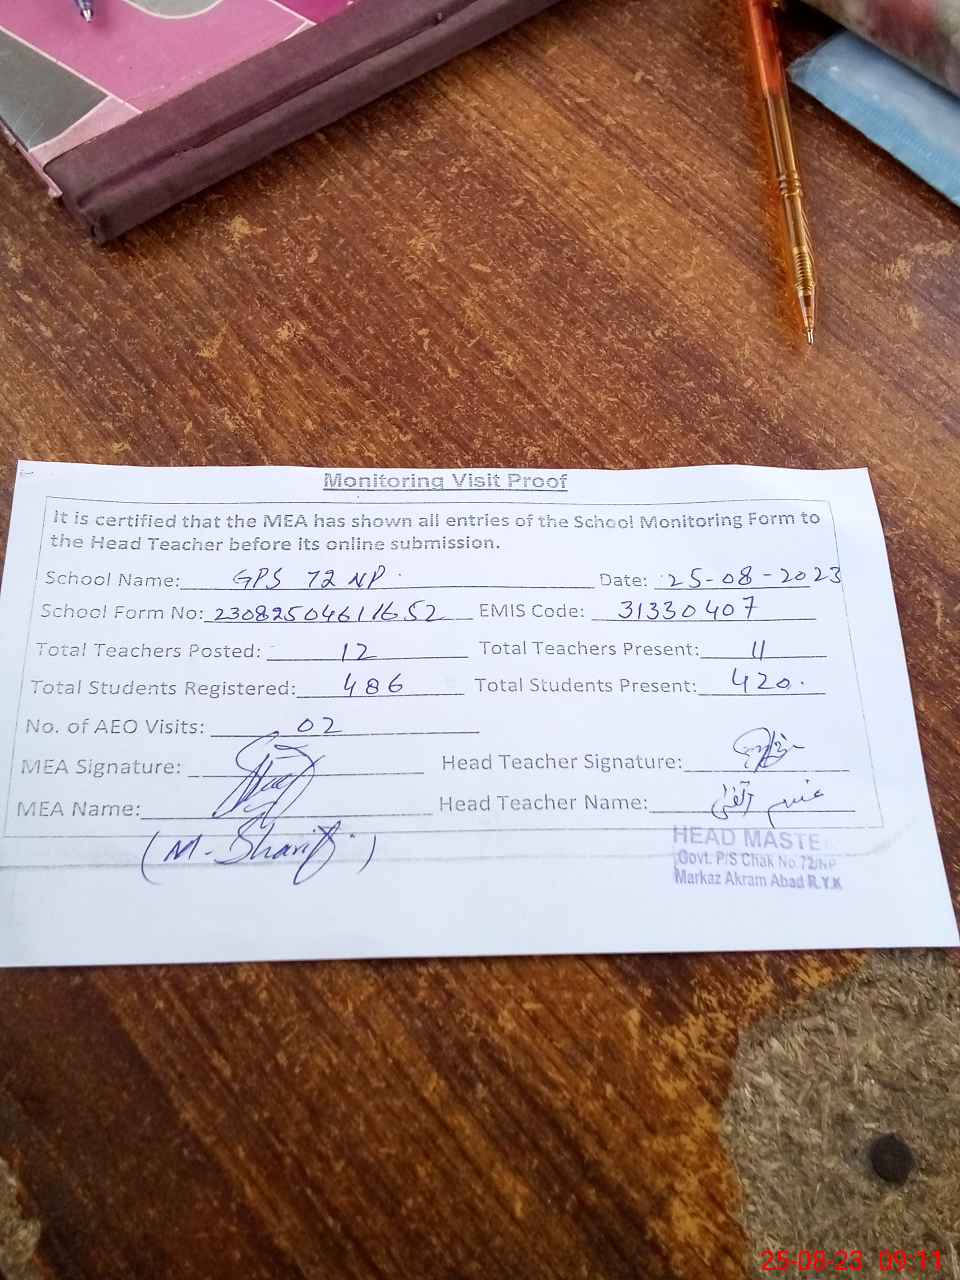 Monitoring Visit Proof
It is certified that the MEA has shown all entries of the School Monitoring Form to
the Head Teacher before its online submission.
School Name: GPS 72 NP. Date: 25-08-2023
School Form No: 23082504611652 EMIS Code: 31330407
Total Teachers Posted: 12 Total Teachers Present: 11
Total Students Registered: 486 Total Students Present: 420.
No. of AEO Visits: 02
MEA Signature: Head Teacher Signature:
MEA Name: Head Teacher Name:
(M. Sharif.)
HEAD MASTE
Govt. P/S Chak No.72/NP
Markaz Akram Abad R.Y.K
25-08-23 09:11